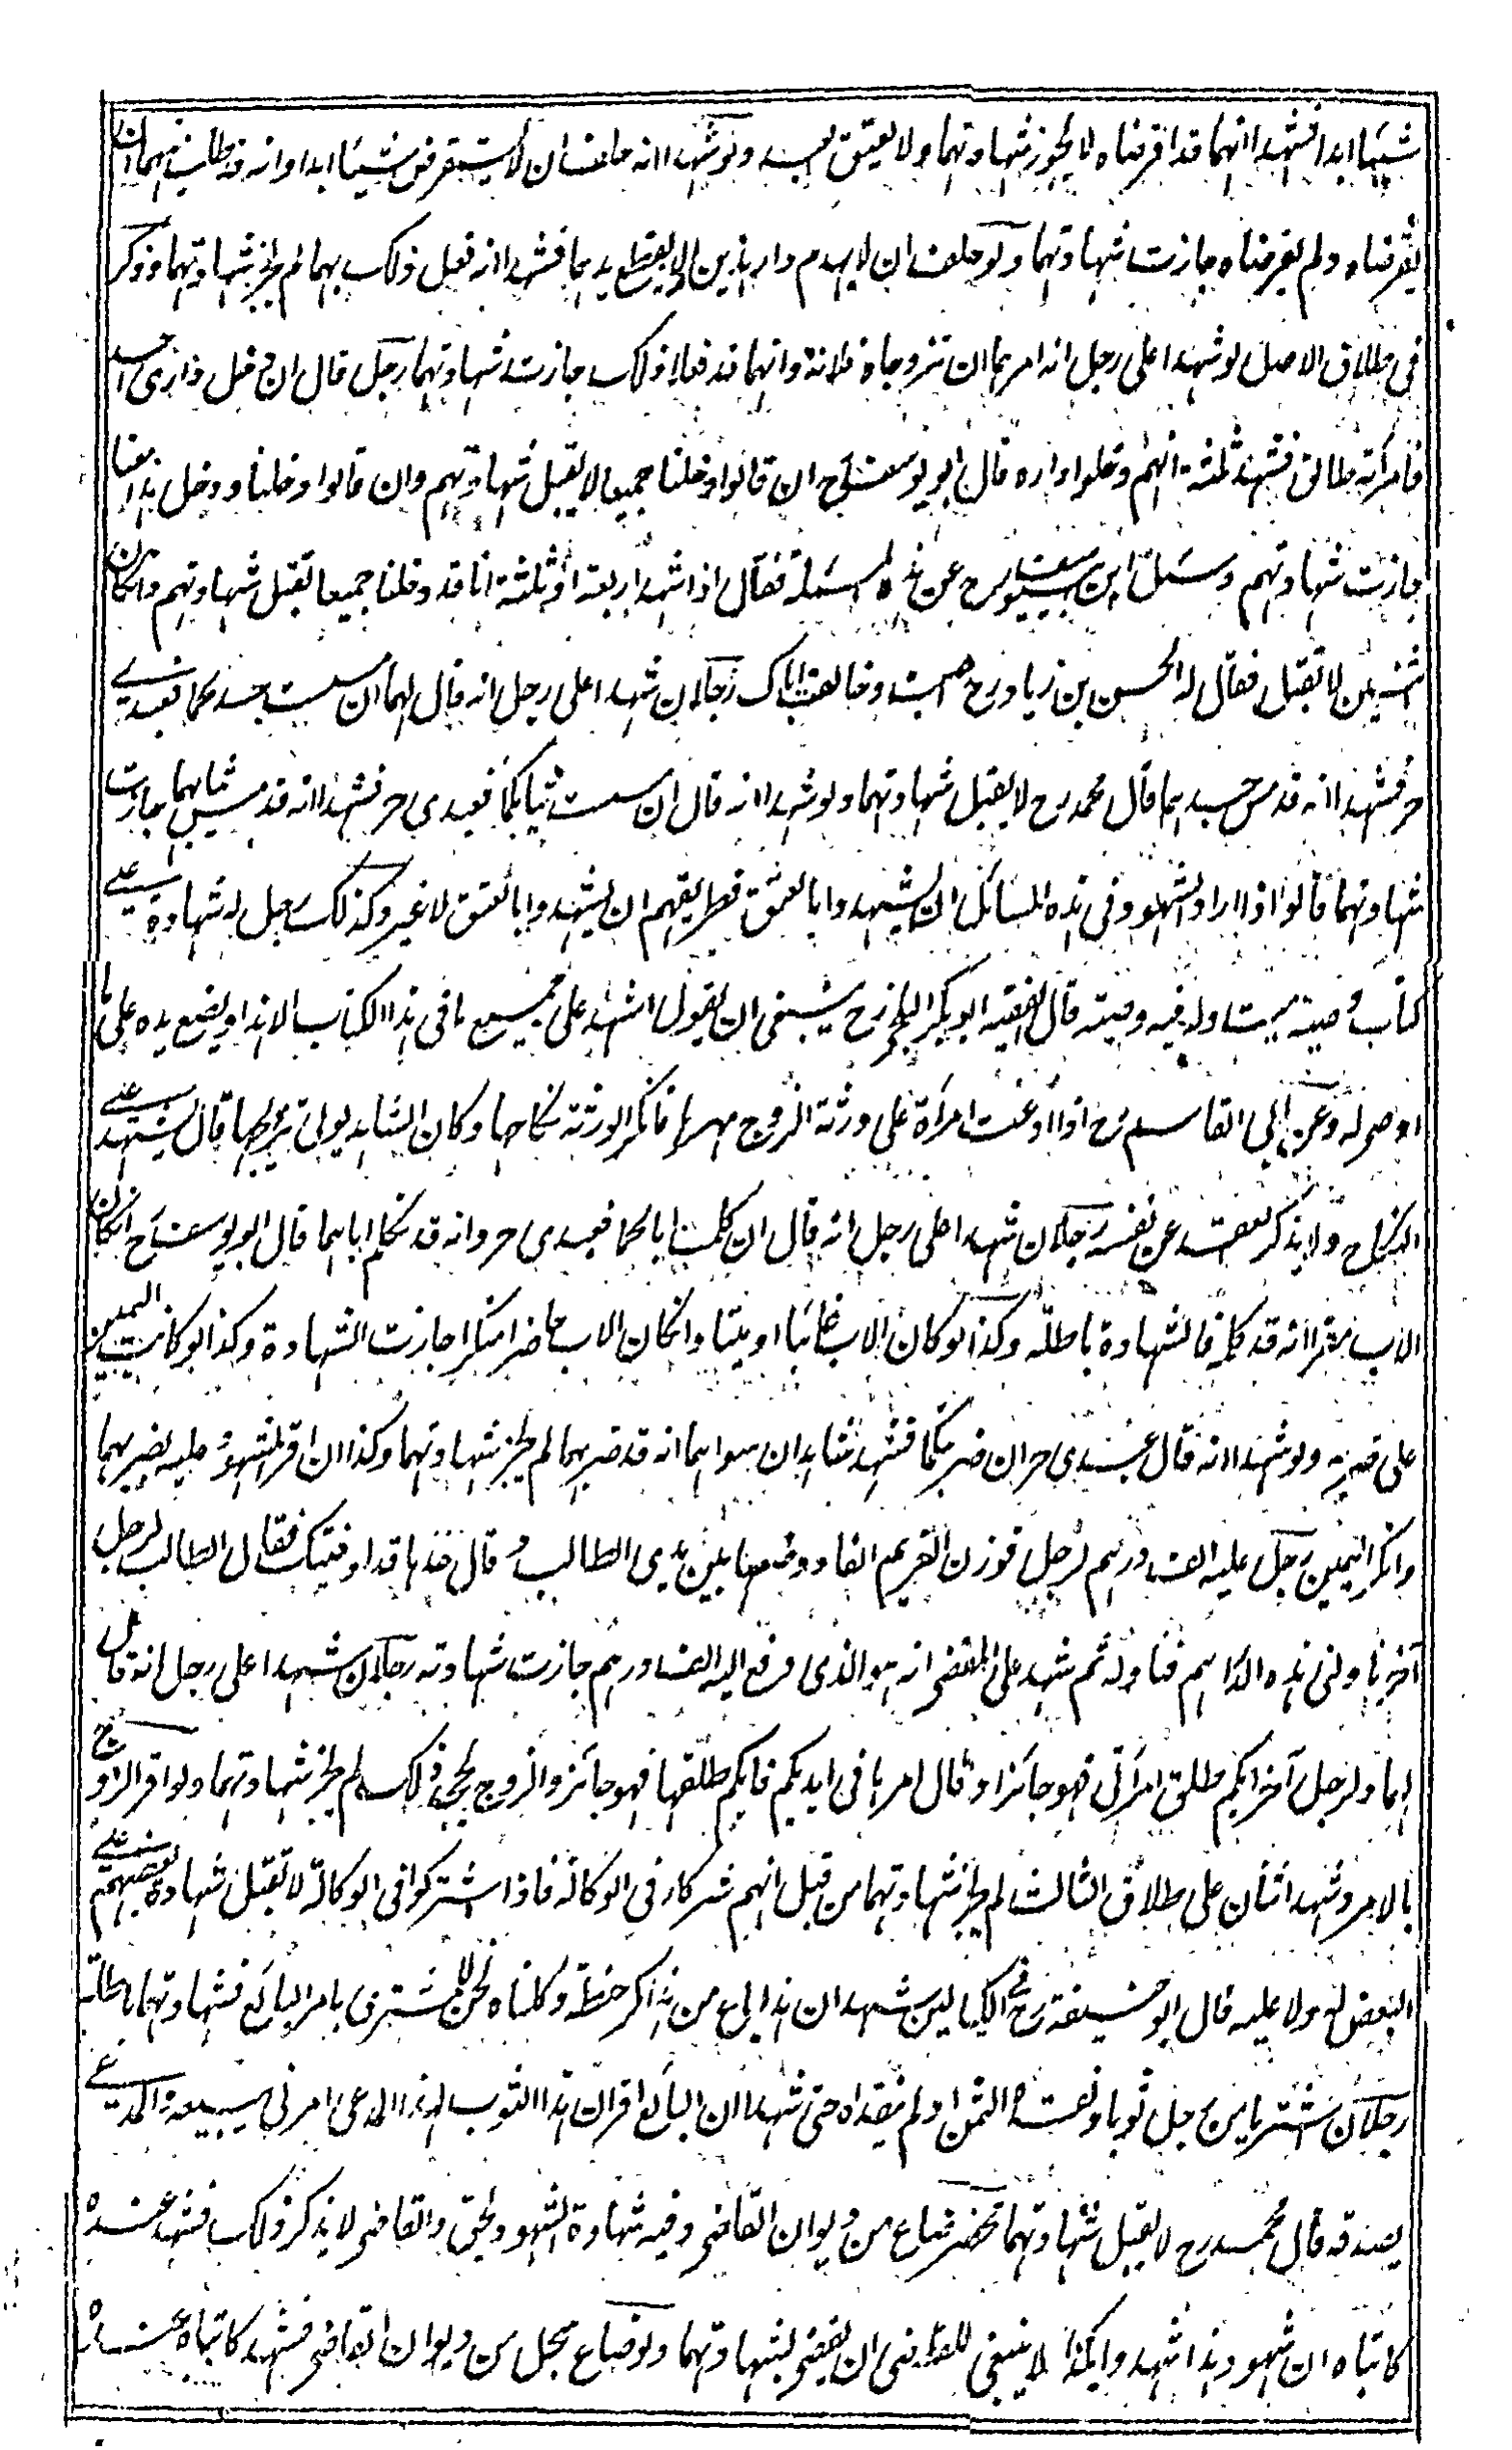 شيئا ابدا فشهدا انهما قد اقرضاه لا يجوز شهادتهما ولا يعتق عبده ولو شهدا انه حلف ان لا يستقرض شيئا ابدا وانه قد طلب منهما ان
يقرضاه ولم يقرضاه جازت شهادتهما ولو حلف ان لا يهدم دار هذين الا يقطع يدهما فشهدا انه فعل ذلك بهما لم يجز شهادتهما وذكر
فى طلاق الاصل لو شهدا على رجل انه امرهما ان تزوجاه فلانة وانهما قد فعلا ذلك جازت شهادتهما رجل قال ان دخل دارى احد
فامرأته طالق فشهد ثلثة انهم دخلوا داره قال ابو يوسف رح ان قالوا دخلنا جميعا لا يقبل شهادتهم وان قالوا دخلنا ودخل هذا معنا
جازت شهادتهم وسئل ابن ابى يوسف رح عن هذه المسئلة فقال اذا شهد اربعة او ثلثة انا قد دخلنا جميعا تقبل شهادتهم وان كان
اثنين لا تقبل فقال له الحسن بن زياد رح اصبت وخالفت اباك رجلان شهدا على رجل انه قال لهما ان مسست جسدكما فعبدى
حر فشهدا انه قد مس جسدهما قال محمد رح لا يقبل شهادتهما ولو شهدا انه قال ان مسست ثيابكما فعبدى حر فشهدا انه قد مس ثيابهما جازت
شهادتهما قالوا اذا اراد الشهود فى هذه المسائل ان يشهدوا بالعتق فطريقهم ان يشهدوا بالعتق لا غير وكذلك رجل له شهادة على
كتاب وصية ميت وله فيه وصية قال الفقيه ابو بكر البلخى رح ينبغى ان يقول اشهد على جميع ما فى هذا الكتاب الا هذا ويضع يده على ما
اوصى له وعن ابى القاسم رح اذا ادعت امرأة على ورثة الزوج مهرها فانكر الورثة نكاحها وكان الشاهد يولى تزويجها قال يشهد على
النكاح ولا يذكر العقد عن نفسه رجلان شهدا على رجل انه قال ان كلمت اباكما فعبدى حر وانه قد كلم اباهما قال ابو يوسف رح ان كان
الاب مقرا انه قد كلمه فالشهادة باطلة وكذا لو كان الاب غائبا او ميتا وان كان الاب حاضرا منكرا جازت الشهادة وكذا لو كانت اليمين
على ضربه ولو شهدا انه قال عبدى حر ان ضربتكما فشهد شاهدان سواهما انه قد ضربهما لم يجز شهادتهما وكذا ان اقر المشهود عليه بضربهما
وانكر اليمين رجل عليه الف درهم لرجل فوزن الغريم الفا ووضعها بين يدى الطالب وقال خذها قد اوفيتك فقال الطالب لرجل
آخر ناولنى هذه الدراهم فناوله ثم شهد على المقتضى انه هو الذى دفع اليه الف درهم جازت شهادته رجلان شهدا على رجل انه قال
لهما ولرجل آخر ايكم طلق امرأتى فهو جائز او قال امرها فى ايديكم فايكم طلقها فهو جائز والزوج يجحد ذلك لم يجز شهادتهما ولو اقر الزوج
بالامر وشهد اثنان على طلاق الثالث لم يجز شهادتهما من قبل انهم شركاء فى الوكالة فاذا اشتركوا فى الوكالة لا تقبل شهادة بعضهم على
البعض له ولا عليه قال ابو حنيفة رح فى الكيالين شهدا ان هذا باع من هذا كر حنطة وكلناه نحن للمشترى بامر البائع فشهادتهما باطلة
رجلان اشتريا من رجل ثوبا ونقدا الثمن او لم ينقداه حتى شهدا ان البائع اقر ان هذا الثوب لهذا المدعى امرنى ببيعه والمدعى
يصدقه قال محمد رح لا يقبل شهادتهما محضر ضاع من ديوان القاضى وفيه شهادة الشهود لحق والقاضى لا يذكر ذلك فشهد عنده
كاتباه ان شهود هذا شهدوا بكذا لا ينبغى للقاضى ان يقضى بشهادتهما ولو ضاع سجل من ديوان القاضى فشهد كاتباه عنده